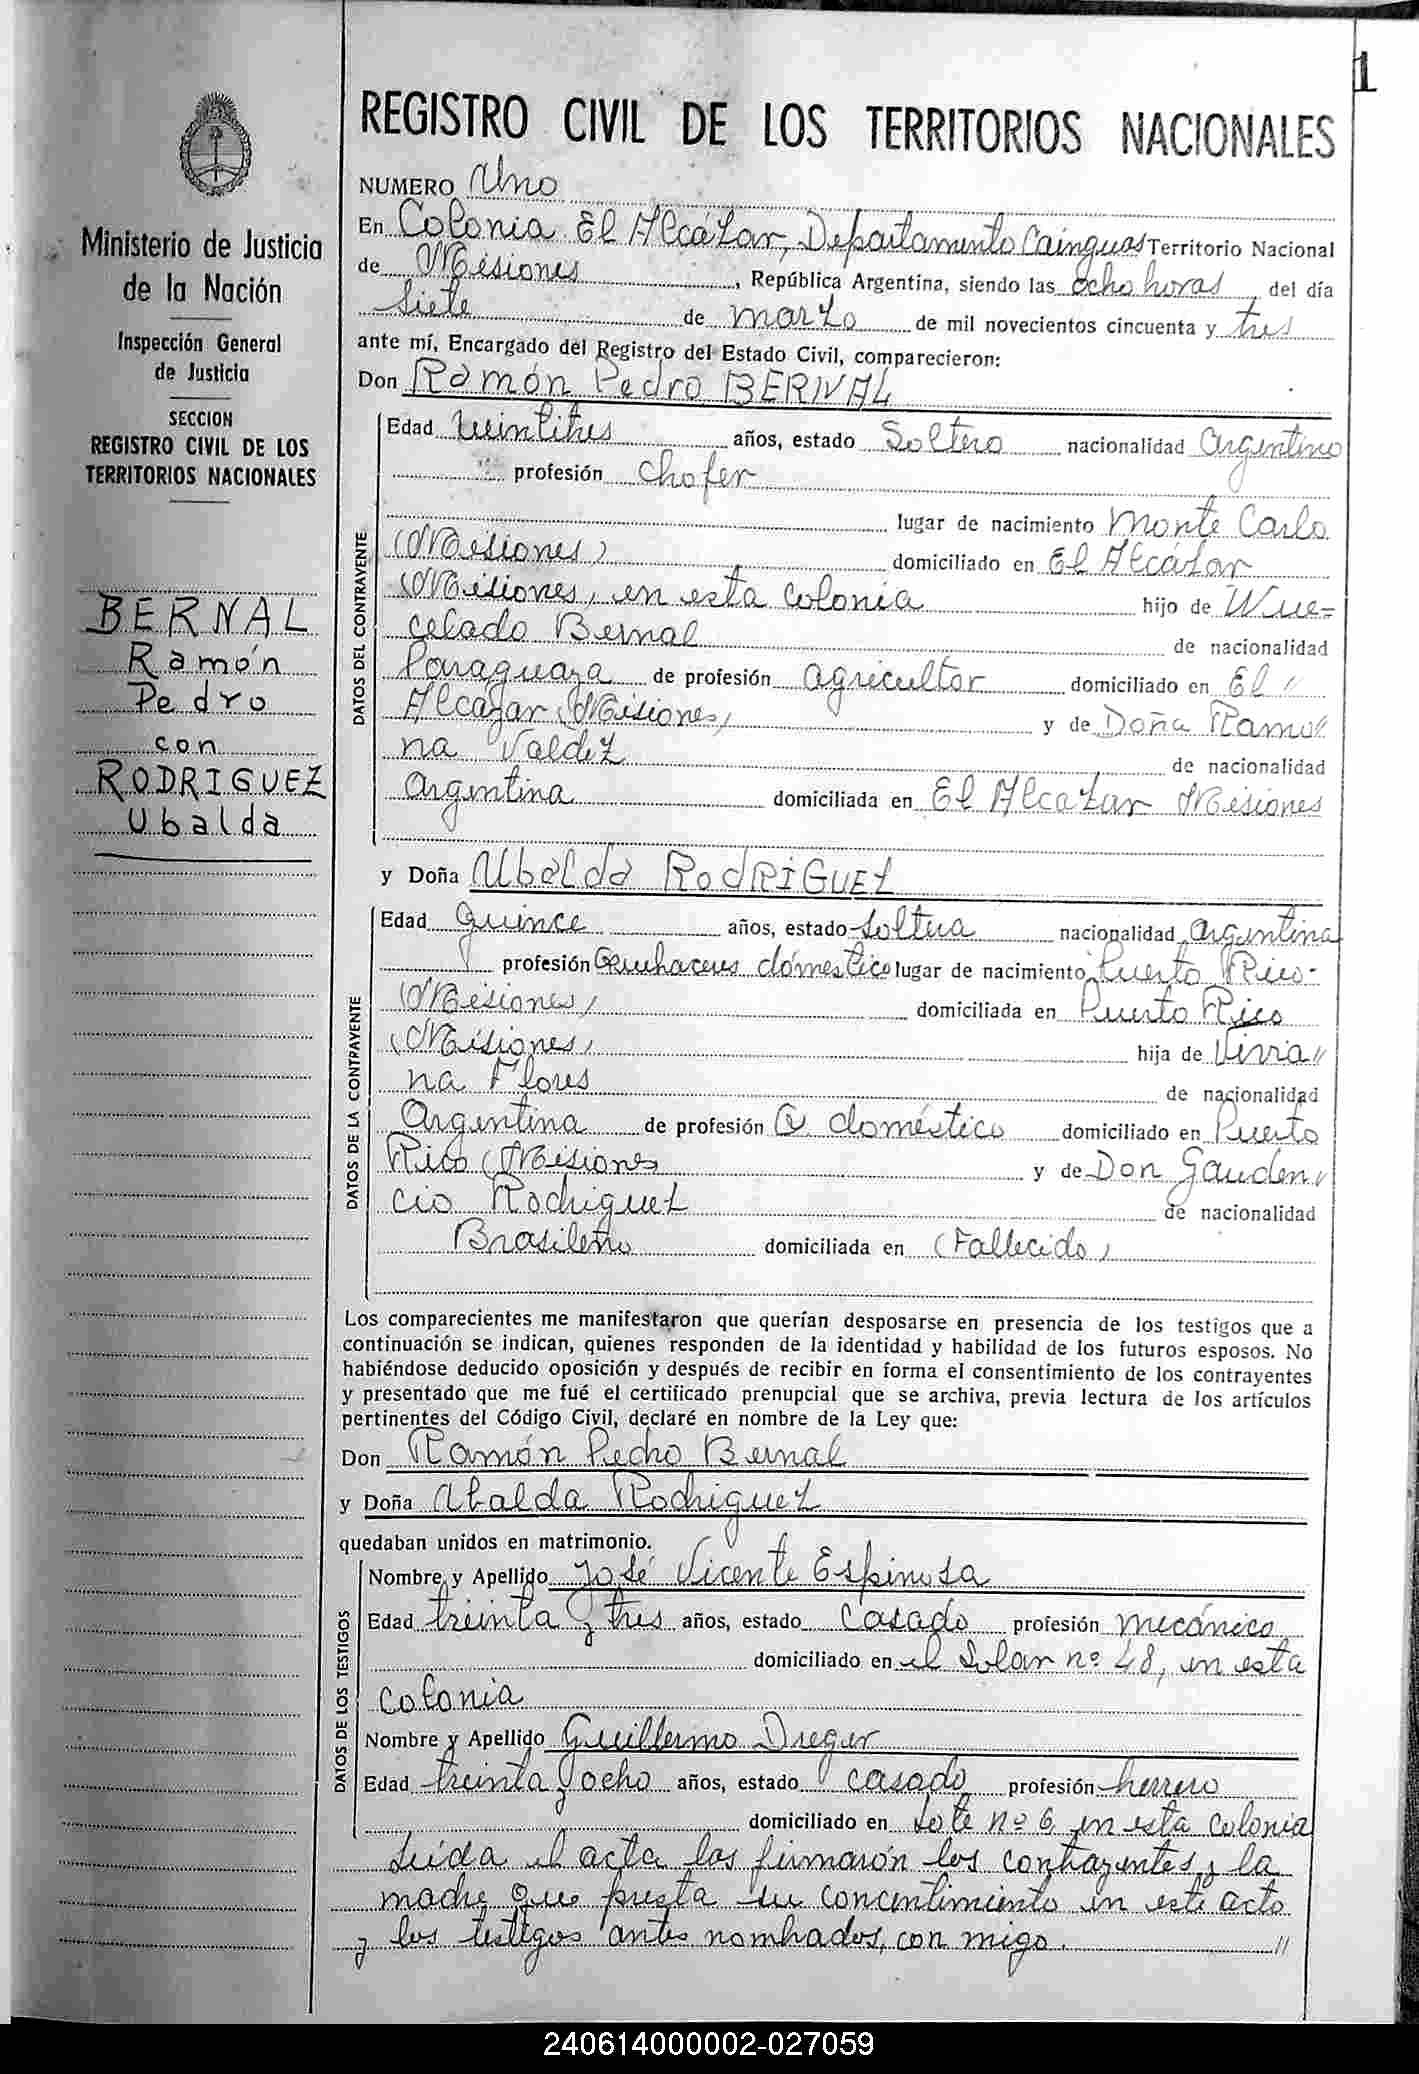 1
REGISTRO CIVIL DE LOS TERRITORIOS NACIONALES
Ministerio de Justicia
de la Nación
Inspección General
de Justicia
SECCION
REGISTRO CIVIL DE LOS
TERRITORIOS NACIONALES
BERNAL
Ramón
Pedro
con
RODRIGUEZ
Ubalda
NUMERO Uno
En Colonia El Alcázar, Departamento Cainguas Territorio Nacional
de Misiones, República Argentina, siendo las ocho horas del día
Siete de marzo de mil novecientos cincuenta y tres
ante mí, Encargado del Registro del Estado Civil, comparecieron:
Don Ramón Pedro BERNAL
DATOS DEL CONTRAYENTE
Edad veintitres años, estado Soltero nacionalidad Argentino
profesión Chofer
lugar de nacimiento Monte Carlo
(Misiones) domiciliado en El Alcázar
(Misiones, en esta colonia hijo de
celado Bernal de nacionalidad
Paraguaya de profesión Agricultor domiciliado en El "
Alcázar (Misiones) y de Doña Ramo"
na Valdez de nacionalidad
Argentina domiciliada en El Alcazar Misiones
y Doña Ubalda RODRIGUEZ
DATOS DE LA CONTRAYENTE
Edad Quince años, estado Soltera nacionalidad Argentina
profesión Quehaceres doméstico lugar de nacimiento Puerto Rico-
(Misiones) domiciliada en Puerto Rico
(Misiones) hija de Vivia"
na Flores de nacionalidad
Argentina de profesión Q. doméstico domiciliado en Puerto
Rico (Misiones y de Don Gauden"
cio Rodriguez de nacionalidad
Brasileño domiciliada en (Fallecido)
Los comparecientes me manifestaron que querían desposarse en presencia de los testigos que a
continuación se indican, quienes responden de la identidad y habilidad de los futuros esposos. No
habiéndose deducido oposición y después de recibir en forma el consentimiento de los contrayentes
y presentado que me fué el certificado prenupcial que se archiva, previa lectura de los artículos
pertinentes del Código Civil, declaré en nombre de la Ley que:
Don Ramón Pedro Bernal
y Doña Ubalda Rodriguez
quedaban unidos en matrimonio.
DATOS DE LOS TESTIGOS
Nombre y Apellido José Vicente Espinosa
Edad treinta y tres años, estado Casado profesión mecánico
domiciliado en el Solar nº 48, en esta
colonia
Nombre y Apellido Guillermo Dreger
Edad treinta y ocho años, estado casado profesión herrero
domiciliado en Lote nº 6 en esta colonia
Leída el acta las firmarón los contrayentes, y la
madre que presta su concentimiento en este acto
y los testigos antes nombrados, con migo. "
240614000002-027059